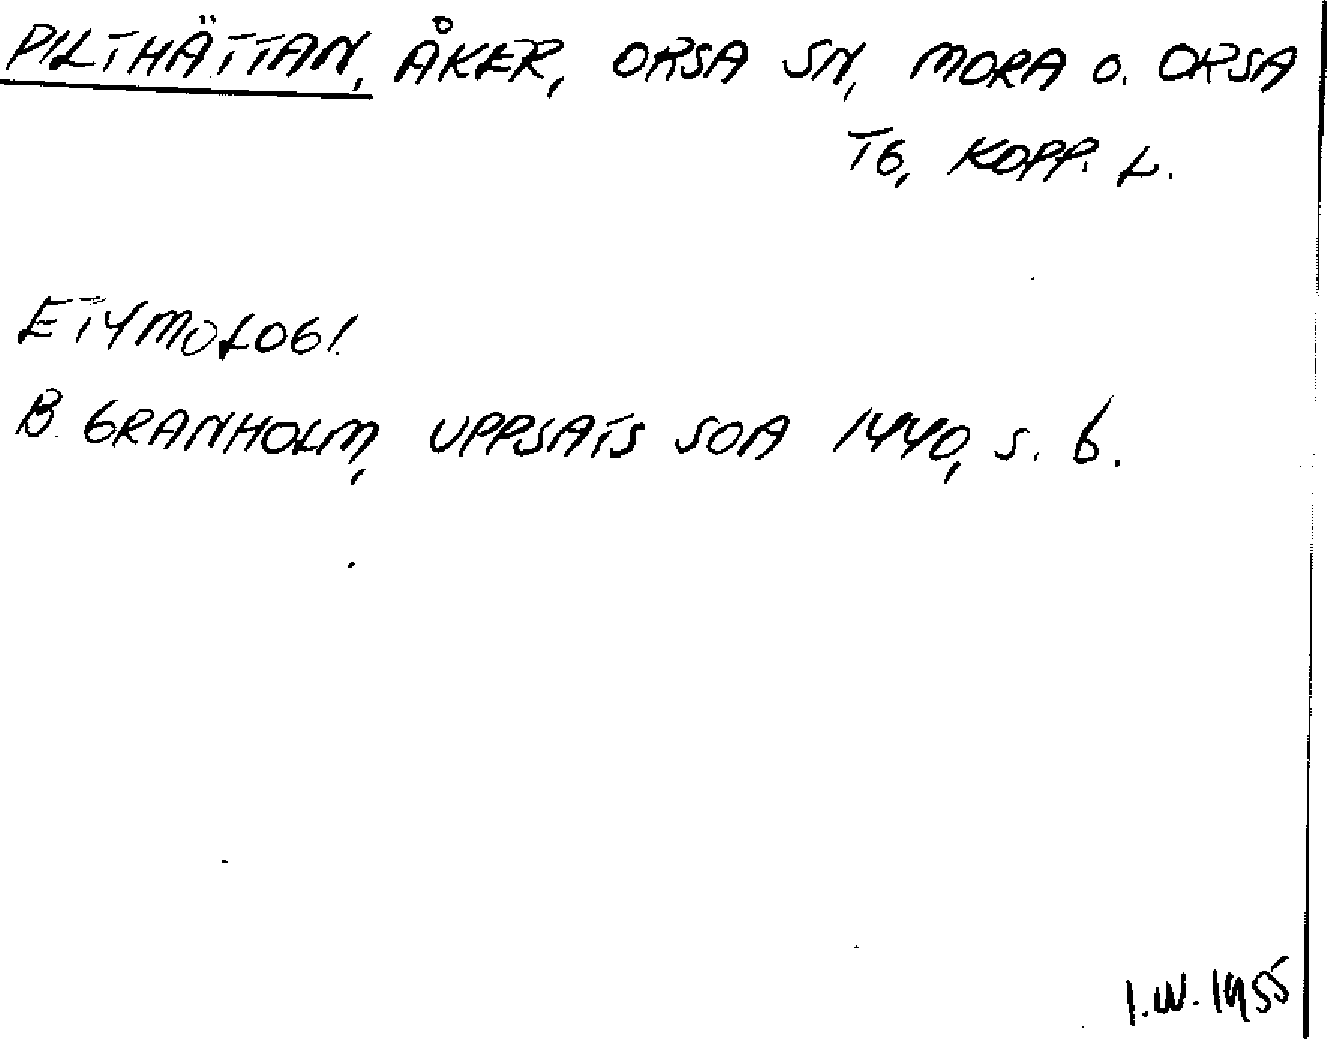 PILTHÄTTAN, ÅKER, ORSA SN, MORA O. ORSA
TG, KOPP. L.
ETYMOLOGI.
B. GRANHOLM, UPPSATS SOA 1440, S. 6.
I.W. 1955